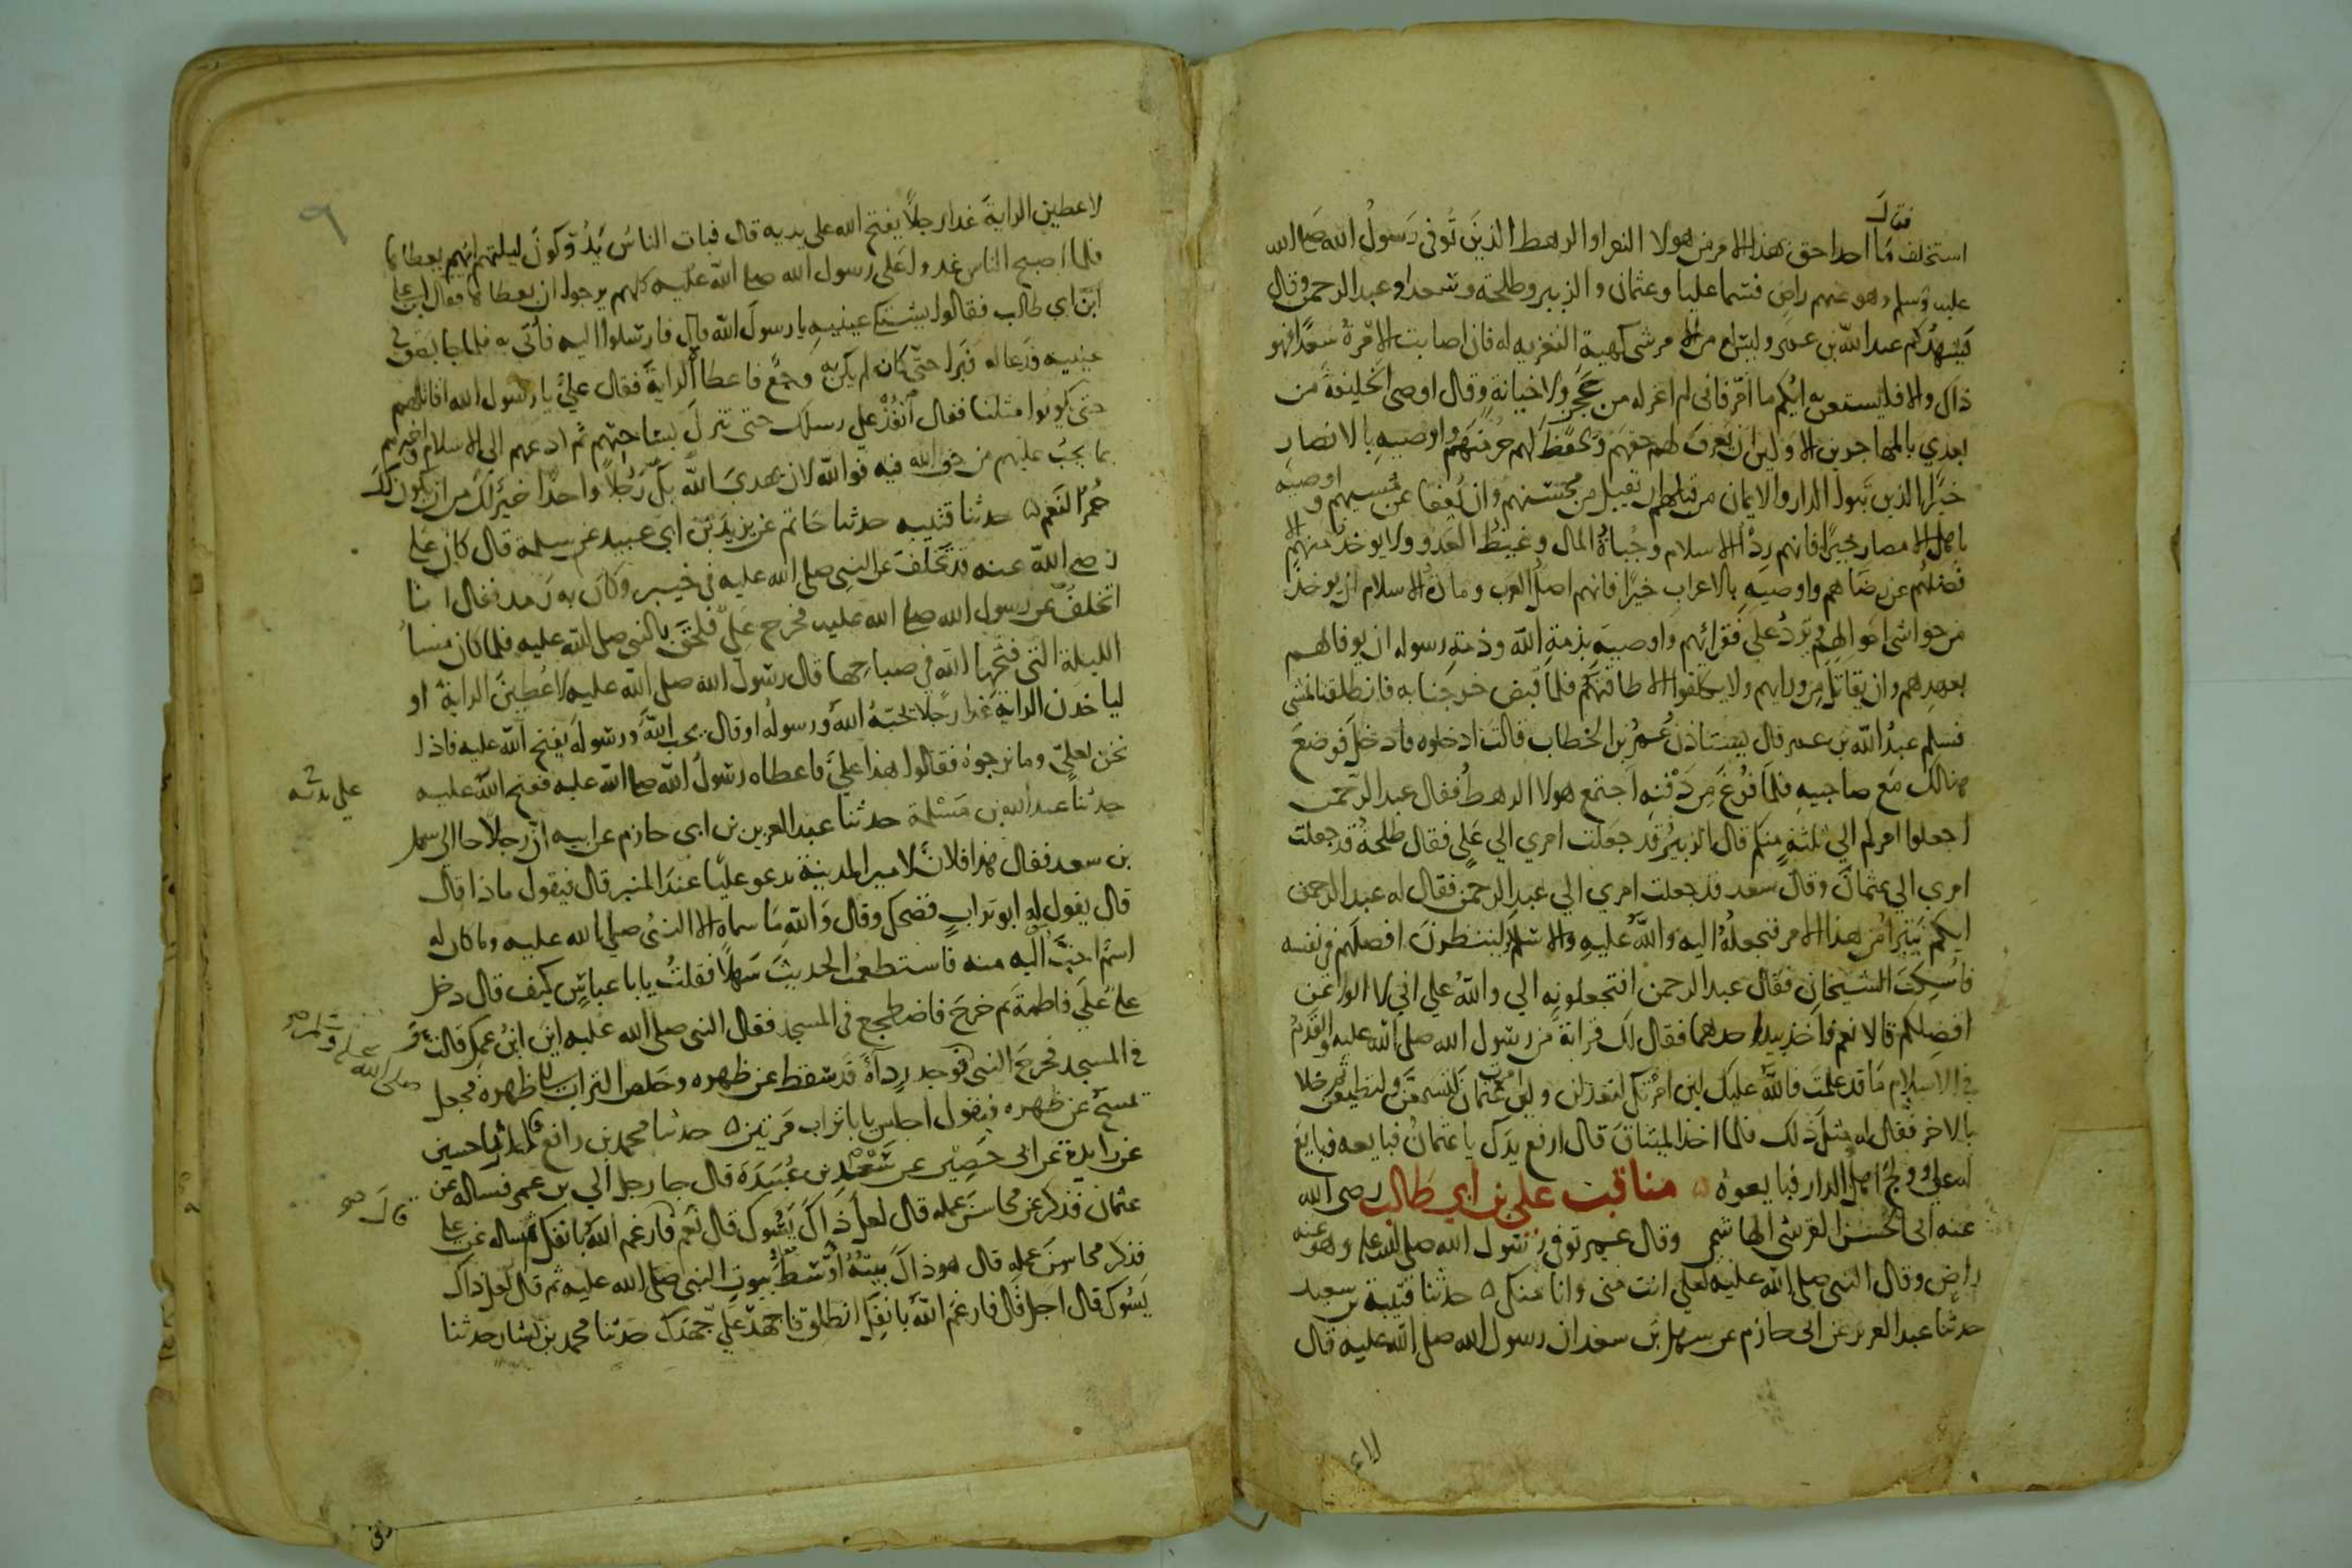 فقال
استخلف ما احدا احق بهذا الامر من هولا النفر او الرهط الذين توفى رسول الله صلى الله
عليه وسلم وهو عنهم راض فسما عليا وعثمان والزبير وطلحة وسعدا وعبد الرحمن وقال
يشهدكم عبد الله بن عمر وليس له من الامر شى كهية التعزيه له فان اصابت الامرة سعدا فهو
ذاك والا فليستعن به ايكم ما امر فانى لم اعزله من عجز ولا خيانة وقال اوصى الخليفة من
بعدي بالمهاجرين الاولين ان يعرف لهم حقهم ويحفظ لهم حرمتهم واوصيه بالانصار
خيرا الذين تبووا الدار والايمان من قبلهم ان يقبل من محسنهم وان يعفا عن مسيهم واوصيه
باهل الامصار خيرا فانهم رد الاسلام وجباة المال وغيظ العدو ولا يوخذ منهم الا
فضلهم عن رضاهم واوصيه بالاعراب خيرا فانهم اصل العرب ومادة الاسلام ان يوخذ
من حواشى اموالهم وترد على فقرائهم واوصيه بذمة الله وذمة رسوله ان يوفا لهم
بعهدهم وان يقاتل من ورايهم ولا يكلفوا الا طاقتهم فلما قبض خرجنا به فانطلقنا نمشى
فسلم عبد الله بن عمر قال يستاذن عمر بن الخطاب قالت ادخلوه فادخل فوضع
هنالك مع صاحبيه فلما فرغ من دفنه اجتمع هولا الرهط فقال عبد الرحمن
اجعلوا امركم الي ثلثة منكم قال الزبير قد جعلت امري الي علي فقال طلحة قد جعلت
امري الي عثمان وقال سعد قد جعلت امري الي عبد الرحمن فقال له عبد الرحمن
ايكم تبرا من هذا الامر فنجعله اليه والله عليه والاسلام لينظرن افضلهم في نفسه
فاسكت الشيخان فقال عبد الرحمن افتجعلونه الي والله علي اني لا الوا عن
افضلكم قالا نعم فاخذ بيد احدهما فقال لك قرابة من رسول الله صلى الله عليه والقدم
في الاسلام ما قد علمت فالله عليك لين امرتك لتعدلن ولين امرت عثمان لتسمعن ولتطيعن ثم خلا
بالاخر فقال له مثل ذلك فلما اخذ الميثاق قال ارفع يدك يا عثمان فبايعه فبايع
له علي وولج اهل الدار فبايعوه ۵ مناقب علي بن ابي طالب رضى الله
عنه ابى الحسن القرشى الهاشمى وقال عمر توفى رسول الله صلى الله عليه وهو عنه
راض وقال النبى صلى الله عليه لعلي انت منى وانا منك ۵ حدثنا قتيبة بن سعيد
حدثنا عبد العزيز عن ابى حازم عن سهل بن سعد ان رسول الله صلى الله عليه قال
لاعطين الراية غدا رجلا يفتح الله على يديه قال فبات الناس يدوكون ليلتهم ايهم يعطاها
فلما اصبح الناس غدوا على رسول الله صلى الله عليه كلهم يرجوا ان يعطاها فقال اين علي
ابن ابي طالب فقالوا يشتكي عينيه يا رسول الله قال فارسلوا اليه فأتى به فلما جا بصق في
عينيه فدعا له فبرا حتى كان لم يكن به وجع فاعطاه الراية فقال علي يا رسول الله اقاتلهم
حتى يكونوا مثلنا فقال انفذ على رسلك حتى تنزل بساحتهم ثم ادعهم الى الاسلام واخبرهم
بما يجب عليهم من حق الله فيه فوالله لان يهدى الله بك رجلا واحدا خير لك من ان يكون لك
حمر النعم ۵ حدثنا قتيبه حدثنا حاتم عن يزيد بن ابي عبيد عن سلمة قال كان علي
رضى الله عنه قد تخلف عن النبى صلى الله عليه في خيبر وكان به رمد فقال انا
اتخلف عن رسول الله صلى الله عليه فخرج علي فلحق بالنبى صلى الله عليه فلما كان مسا
الليلة التى فتحها الله فى صباحها قال رسول الله صلى الله عليه لاعطين الراية او
لياخذن الراية غدا رجلا يحبه الله ورسوله او قال يحب الله ورسوله يفتح الله عليه فاذا
نحن بعلي وما نرجوه فقالوا هذا علي فاعطاه رسول الله صلى الله عليه ففتح الله عليه
حدثنا عبد الله بن مسلمة حدثنا عبد العزيز بن ابى حازم عن ابيه ان رجلا جا الى سهل
بن سعد فقال هذا فلان لامير المدينة يدعو عليا عند المنبر قال فيقول ماذا قال
قال يقول له ابو تراب فضحك وقال والله ما سماه الا النبى صلى الله عليه وما كان له
اسم احب اليه منه فاستطعمت الحديث سهلا فقلت يا با عباس كيف قال دخل
علي على فاطمة ثم خرج فاضطجع فى المسجد فقال النبى صلى الله عليه اين ابن عمك قالت
فى المسجد فخرج النبى فوجد رداه قد سقط عن ظهره وخلص التراب الى ظهره فجعل
يمسح عن ظهره فيقول اجلس يا با تراب مرتين ۵ حدثنا محمد بن رافع حدثنا حسين
عن زايدة عن ابى حصين عن سعد بن عبيدة قال جا رجل الي بن عمر فساله عن
عثمان فذكر عن محاسن عمله قال لعل ذاك يسوك قال نعم قال فارغم الله بانفك ثم ساله عن علي
فذكر محاسن عمله قال هو ذاك بيته اوسط بيوت النبى صلى الله عليه ثم قال لعل ذاك
يسوك قال اجل قال فارغم الله بانفك انطلق فاجهد علي جهدك حدثنا محمد بن بشار حدثنا